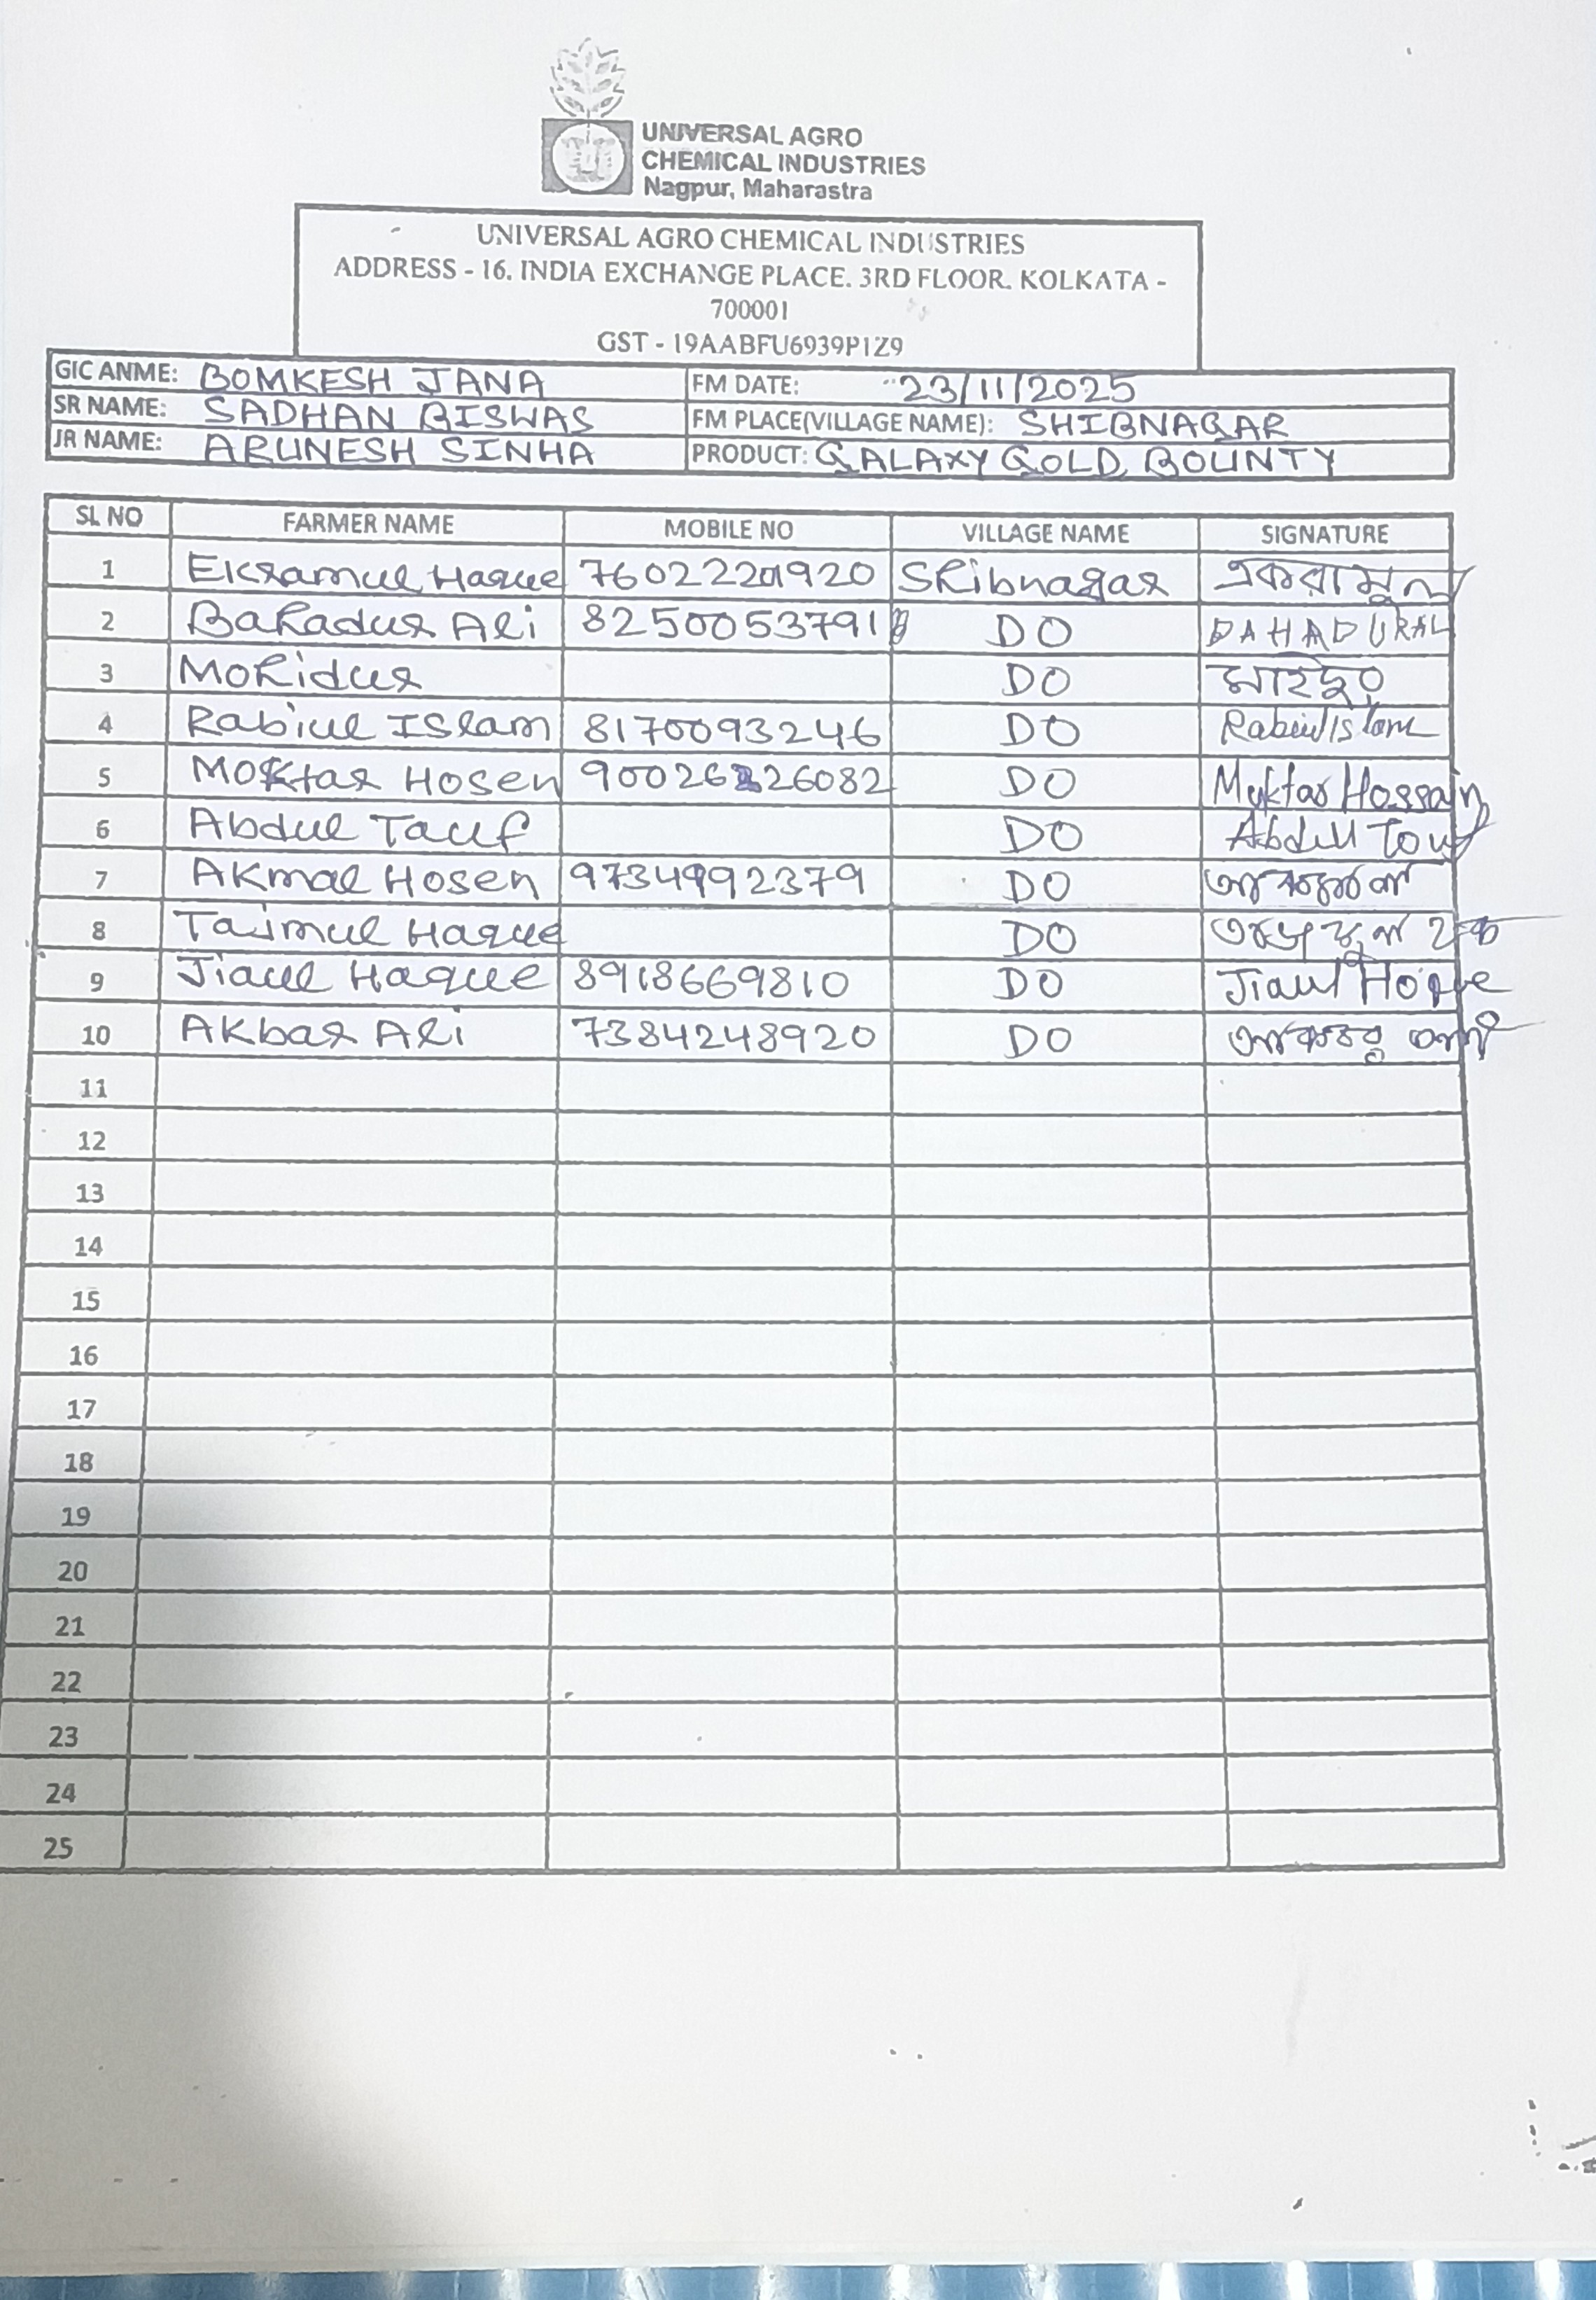 UNIVERSAL AGRO
CHEMICAL INDUSTRIES
Nagpur, Maharastra
UNIVERSAL AGRO CHEMICAL INDUSTRIES
ADDRESS - 16. INDIA EXCHANGE PLACE. 3RD FLOOR. KOLKATA -
700001
GST - 19AABFU6939P1Z9
GIC ANME: BOMKESH JANA FM DATE: 23/11/2025
SR NAME: SADHAN BISWAS FM PLACE(VILLAGE NAME): SHIBNAGAR
JR NAME: ARUNESH SINHA PRODUCT: GALAXY GOLD, BOUNTY
SL NO FARMER NAME MOBILE NO VILLAGE NAME SIGNATURE
1 Ekramul Haque Shibnagar একরামুল
2 Bahadur Ali 8250053791 DO BAHADURAL
3 Mohidur DO
4 Rabiul Islam 8170093246 DO Rabiul Islam
5 Moktar Hosen DO Muktar Hossain
6 Abdul Tauf DO Abdul Touf
7 Akmal Hosen 9734992379 DO
8 Taimul Haque DO
9 Jiaul Haque 8918669810 DO Jiaul Hoque
10 Akbar Ali 7384248920 DO আকবর আলী
11
12
13
14
15
16
17
18
19
20
21
22
23
24
25